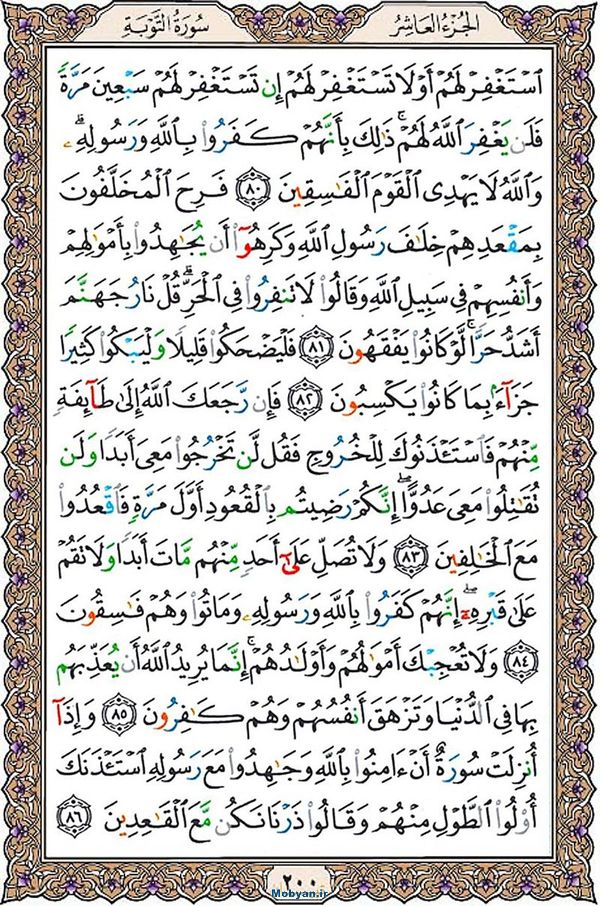 الجُزءُ العَاشِرُ
سُورَةُ التَّوۡبَةِ
ٱسۡتَغۡفِرۡ لَهُمۡ أَوۡ لَا تَسۡتَغۡفِرۡ لَهُمۡ إِن تَسۡتَغۡفِرۡ لَهُمۡ سَبۡعِينَ مَرَّةٗ
فَلَن يَغۡفِرَ ٱللَّهُ لَهُمۡۚ ذَٰلِكَ بِأَنَّهُمۡ كَفَرُواْ بِٱللَّهِ وَرَسُولِهِۦۗ
وَٱللَّهُ لَا يَهۡدِي ٱلۡقَوۡمَ ٱلۡفَٰسِقِينَ ٨٠ فَرِحَ ٱلۡمُخَلَّفُونَ
بِمَقۡعَدِهِمۡ خِلَٰفَ رَسُولِ ٱللَّهِ وَكَرِهُوٓاْ أَن يُجَٰهِدُواْ بِأَمۡوَٰلِهِمۡ
وَأَنفُسِهِمۡ فِي سَبِيلِ ٱللَّهِ وَقَالُواْ لَا تَنفِرُواْ فِي ٱلۡحَرِّۗ قُلۡ نَارُ جَهَنَّمَ
أَشَدُّ حَرّٗاۚ لَّوۡ كَانُواْ يَفۡقَهُونَ ٨١ فَلۡيَضۡحَكُواْ قَلِيلٗا وَلۡيَبۡكُواْ كَثِيرٗا
جَزَآءَۢ بِمَا كَانُواْ يَكۡسِبُونَ ٨٢ فَإِن رَّجَعَكَ ٱللَّهُ إِلَىٰ طَآئِفَةٖ
مِّنۡهُمۡ فَٱسۡتَـٔۡذَنُوكَ لِلۡخُرُوجِ فَقُل لَّن تَخۡرُجُواْ مَعِيَ أَبَدٗا وَلَن
تُقَٰتِلُواْ مَعِيَ عَدُوًّاۖ إِنَّكُمۡ رَضِيتُم بِٱلۡقُعُودِ أَوَّلَ مَرَّةٖ فَٱقۡعُدُواْ
مَعَ ٱلۡخَٰلِفِينَ ٨٣ وَلَا تُصَلِّ عَلَىٰٓ أَحَدٖ مِّنۡهُم مَّاتَ أَبَدٗا وَلَا تَقُمۡ
عَلَىٰ قَبۡرِهِۦٓۖ إِنَّهُمۡ كَفَرُواْ بِٱللَّهِ وَرَسُولِهِۦ وَمَاتُواْ وَهُمۡ فَٰسِقُونَ
٨٤ وَلَا تُعۡجِبۡكَ أَمۡوَٰلُهُمۡ وَأَوۡلَٰدُهُمۡۚ إِنَّمَا يُرِيدُ ٱللَّهُ أَن يُعَذِّبَهُم
بِهَا فِي ٱلدُّنۡيَا وَتَزۡهَقَ أَنفُسُهُمۡ وَهُمۡ كَٰفِرُونَ ٨٥ وَإِذَآ
أُنزِلَتۡ سُورَةٌ أَنۡ ءَامِنُواْ بِٱللَّهِ وَجَٰهِدُواْ مَعَ رَسُولِهِ ٱسۡتَـٔۡذَنَكَ
أُوْلُواْ ٱلطَّوۡلِ مِنۡهُمۡ وَقَالُواْ ذَرۡنَا نَكُن مَّعَ ٱلۡقَٰعِدِينَ ٨٦
٢٠٠
Mobyan.ir